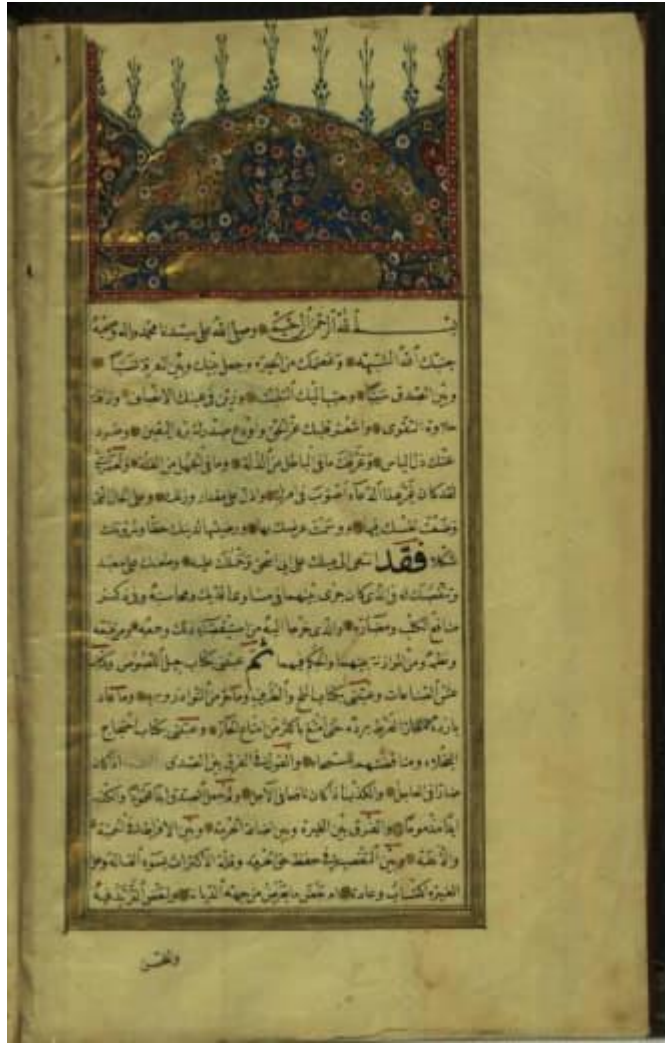 بسم الله الرحمن الرحيم وصلى الله على سيدنا محمد واله وصحبه
جنبك الله الشبهة وعصمك من الحيرة وجعل بينك وبين المعرفة نسبا
وبين الصدق سببا وحبب اليك التثبت وزين في عينك الانصاف واذاقك
حلاوة التقوى واشعر قلبك عز الحق واودع صدرك برد اليقين وطرد
عنك ذل الياس وعرفك ما في الباطل من الذلة وما في الجهل من القلة ولعمري
لقد كان غير هذا الدعاء اصوب في امرك وادل على مقدار وزنك وعلى الحال التي
وضعت نفسك فيها ووسمت عرضك بها ورضيتها لدينك حظا ولمروتك
شكلا فقد انتهى الي ميلك على ابي اسحق وحملك عليه وطعنك على معبد
وتنقصك له في الذي كان جرى بينهما في مساوي الديك ومحاسنه وفي ذكر
منافع الكلب ومضاره والذي خرجا اليه من استقصاء ذلك وجمعه ومن تتبعه
ونظمه ومن الموازنة بينهما والحكم فيهما ثم عبتني بكتاب حيل اللصوص وكتاب
غش الصناعات وعبتني بكتاب الملح والطرف وما حر من النوادر وبرد وما عاد
بارده حارا لفرط برده حتى امتع باكثر من امتاع الحار وعبتني بكتاب احتجاج
البخلاء ومناقضتهم للسمحاء والقول في الفرق بين الصدق اذا كان
ضارا في العاجل والكذب اذا كان نافعا في الآجل ولم جعل الصدق ابدا محمودا والكذب
ابدا مذموما والفرق بين الغيرة وبين اضاعة الحرمة وبين الافراط في الحمية
والانفة وبين التقصير في حفظ حق الحرمة وقلة الاكتراث بسوء القالة وهل
الغيرة اكتساب وعادة ام بعض ما يعرض من جهة الديانة ولبعض التزيد فيه
والتحسن